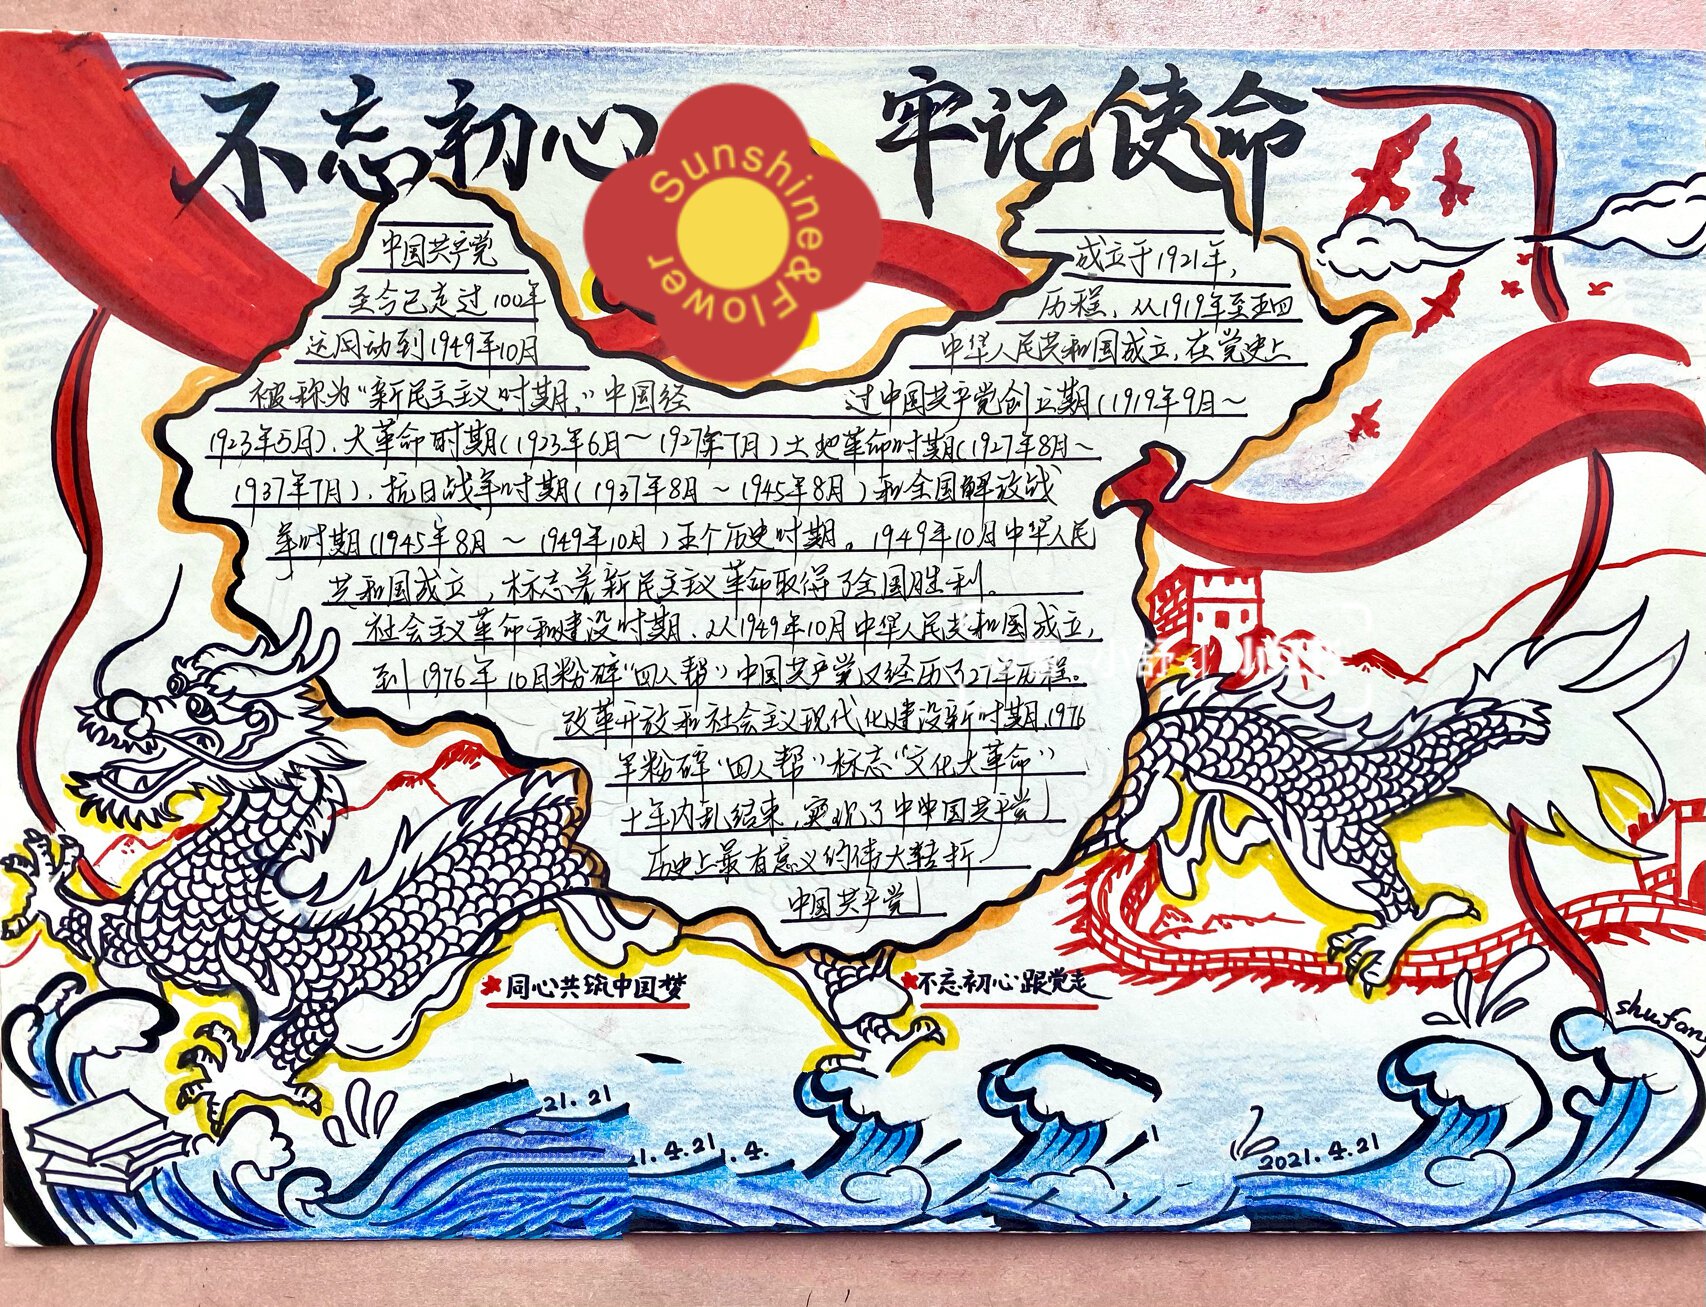 不忘初心 牢记使命
Sunshine&Flower
中国共产党 成立于1921年,
至今已走过100年 历程，从1919年至五四
运动到1949年10月 中华人民共和国成立,在党史上
被称为“新民主主义时期,”中国经 过中国共产党创立期(1919年9月~
1923年5月)、大革命时期(1923年6月~1927年7月)土地革命时期(1927年8月~
1937年7月)、抗日战争时期(1937年8月~1945年8月)和全国解放战
争时期(1945年8月~1949年10月)五个历史时期。1949年10月中华人民
共和国成立,标志着新民主主义革命取得了全国胜利。
社会主义革命和建设时期、从1949年10月中华人民共和国成立,
到1976年10月粉碎“四人帮”中国共产党又经历了27年历程。
改革开放和社会主义现代化建设新时期,1976
年粉碎“四人帮”标志“文化大革命”
十年内乱结束,实现了中中国共产党
历史上最有意义的伟大转折
中国共产党
同心共筑中国梦
不忘初心跟党走
shufang
21.21
21.4.21.4.
2021.4.21